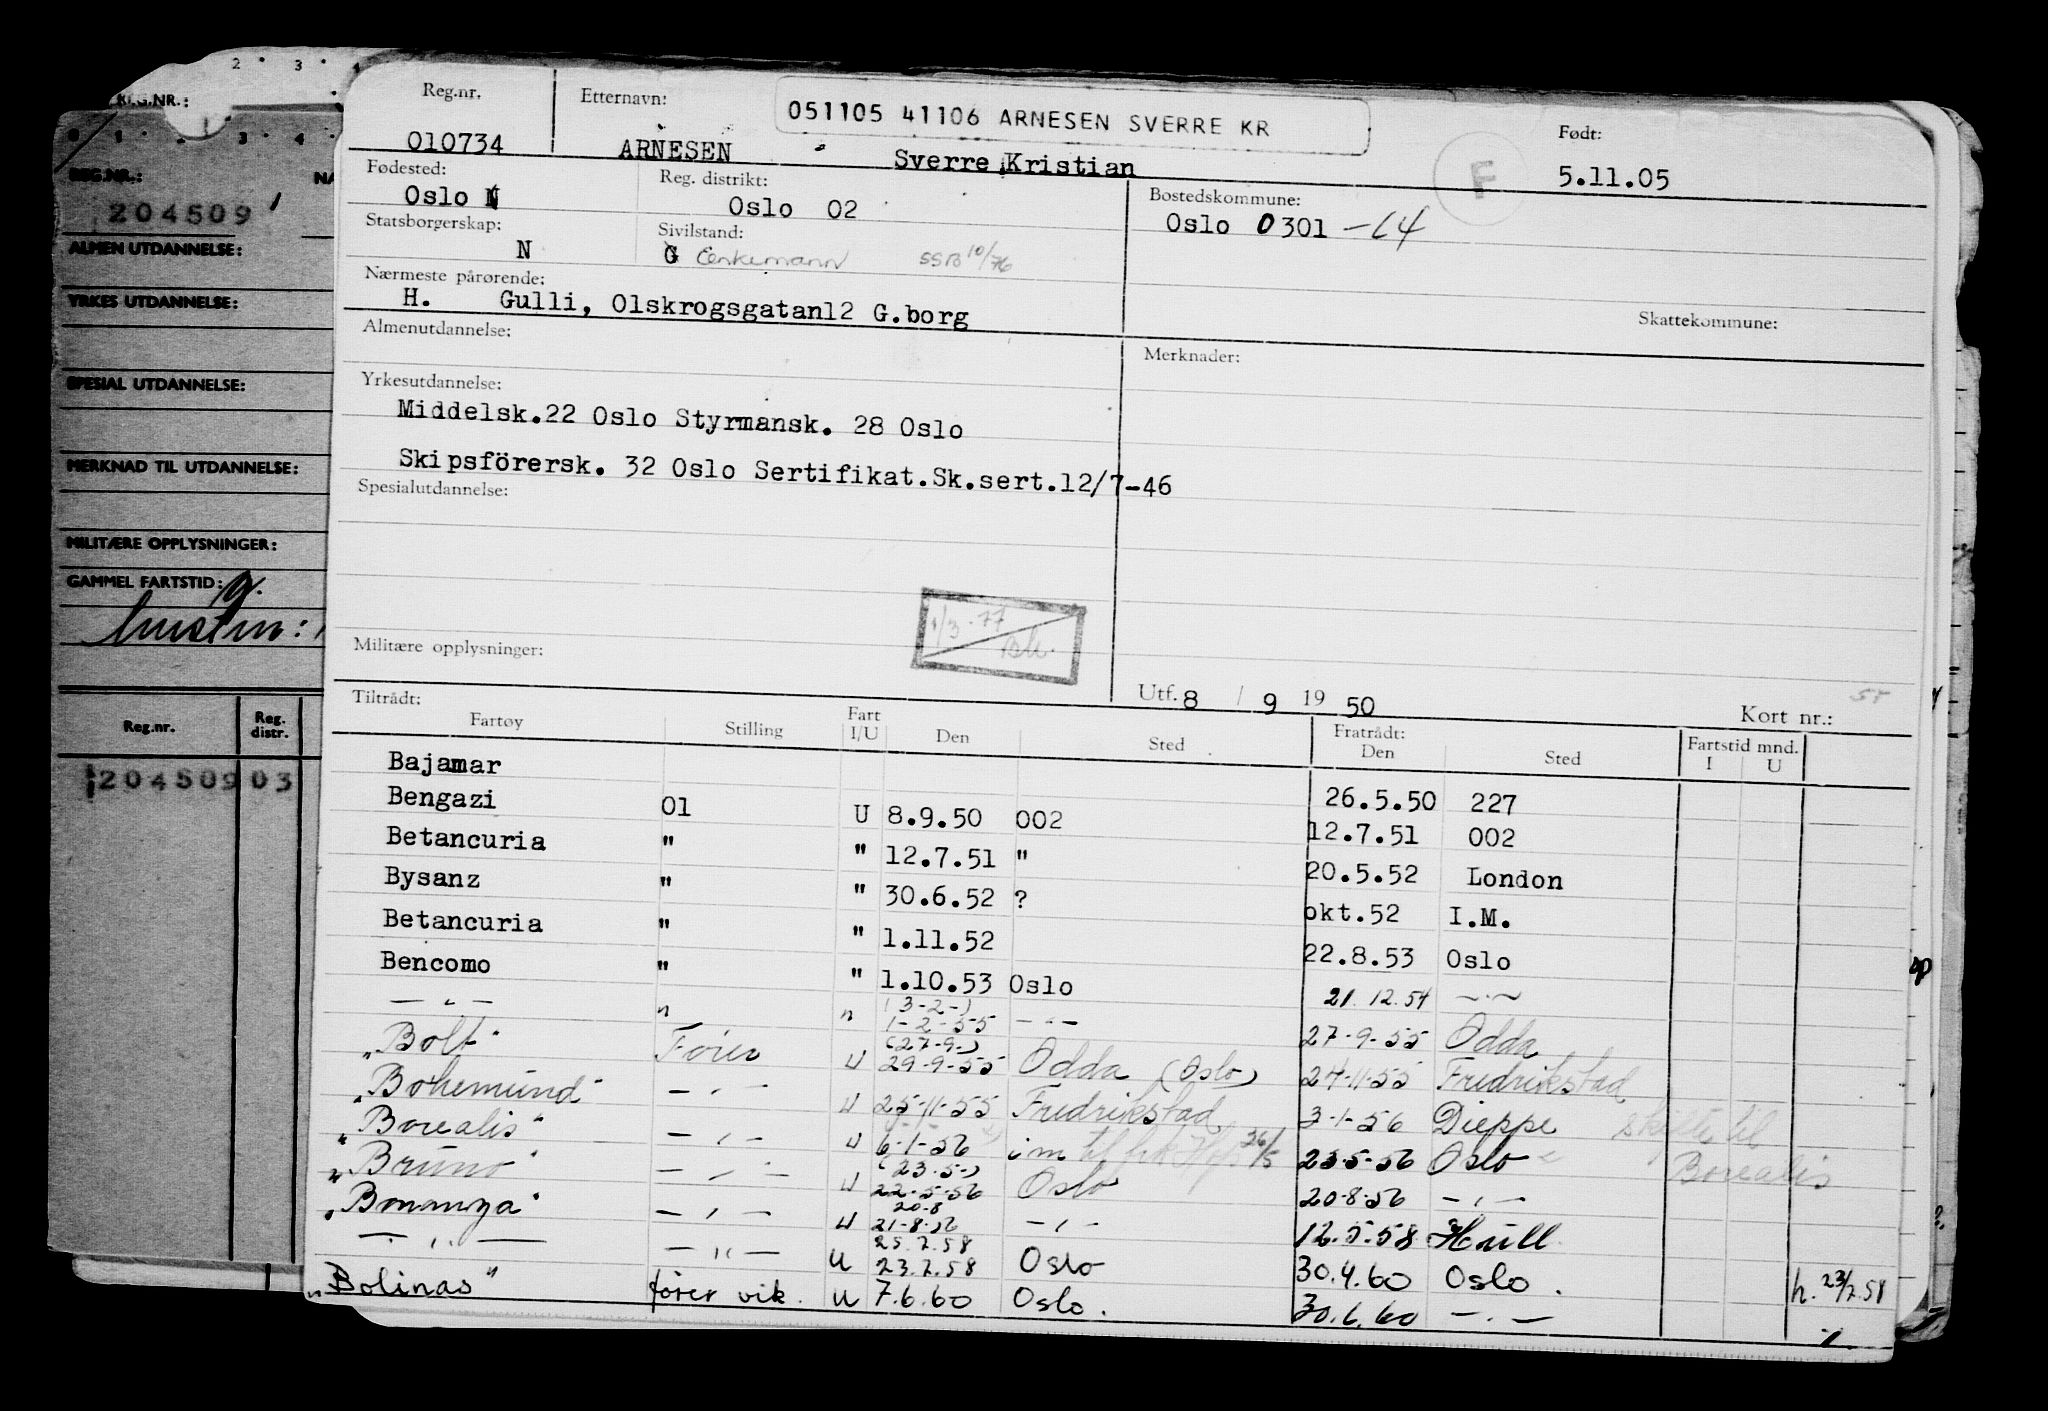 2 · 3 · 4
REG.NR.:
0 · 1 · 2 · 3 · 4
REG.NR.: NA
204509
ALMEN UTDANNELSE:
YRKES UTDANNELSE:
SPESIAL UTDANNELSE:
MERKNAD TIL UTDANNELSE:
MILITÆRE OPPLYSNINGER:
GAMMEL FARTSTID:
Reg.nr. Reg. distr.
204509 03
051105 41106 ARNESEN SVERRE KR
Reg.nr. Etternavn: Født:
010734 ARNESEN Sverre Kristian F 5.11.05
Fødested: Reg. distrikt: Bostedskommune:
Oslo N Oslo 02 Oslo 0301 -14
Statsborgerskap: Sivilstand:
N G Enkemann SSB 10/76
Nærmeste pårørende:
H. Gulli, Olskrogsgatan12 G.borg
Skattekommune:
Almenutdannelse: Merknader:
Yrkesutdannelse:
Middelsk.22 Oslo Styrmansk. 28 Oslo
Skipsförersk. 32 Oslo Sertifikat.Sk.sert.12/7-46
Spesialutdannelse:
1/3-77
Militære opplysninger:
Utf. 8 / 9 19 50 Kort nr.:
Tiltrådt: Fratrådt:
Fartøy Stilling Fart I/U Den Sted Den Sted Fartstid mnd. I U
Bajamar 26.5.50 227
Bengazi 01 U 8.9.50 002 12.7.51 002
Betancuria " " 12.7.51 " 20.5.52 London
Bysanz " " 30.6.52 ? okt.52 I.M.
Betancuria " " 1.11.52 22.8.53 Oslo
Bencomo " " 1.10.53 Oslo 21.12.54 — " —
— " — " " (3-2-) 1-2-55 — " — 27-9-55 Odda
"Bolt" Fører U (27-9-) 29-9-55 Odda (Oslo) 24-11-55 Fredrikstad
"Bohemund" — " — U 25-11-55 Fredrikstad 3-1-56 Dieppe skifte til
"Borealis" — " — U 6-1-56 im til frk 26/5 23-5-56 Oslo Borealis
"Bruno" — " — U (23.5-) 22-5-56 Oslo 20-8-56 — " —
"Bonanza" — " — U 20-8 21-8-56 — " — 12.5.58 Hull
— " — — " — U 25.7.58 23.7.58 Oslo 30.4.60 Oslo. h. 23/7.58
"Bolinas" fører vik. U 7.6.60 Oslo. 30.6.60 — " —